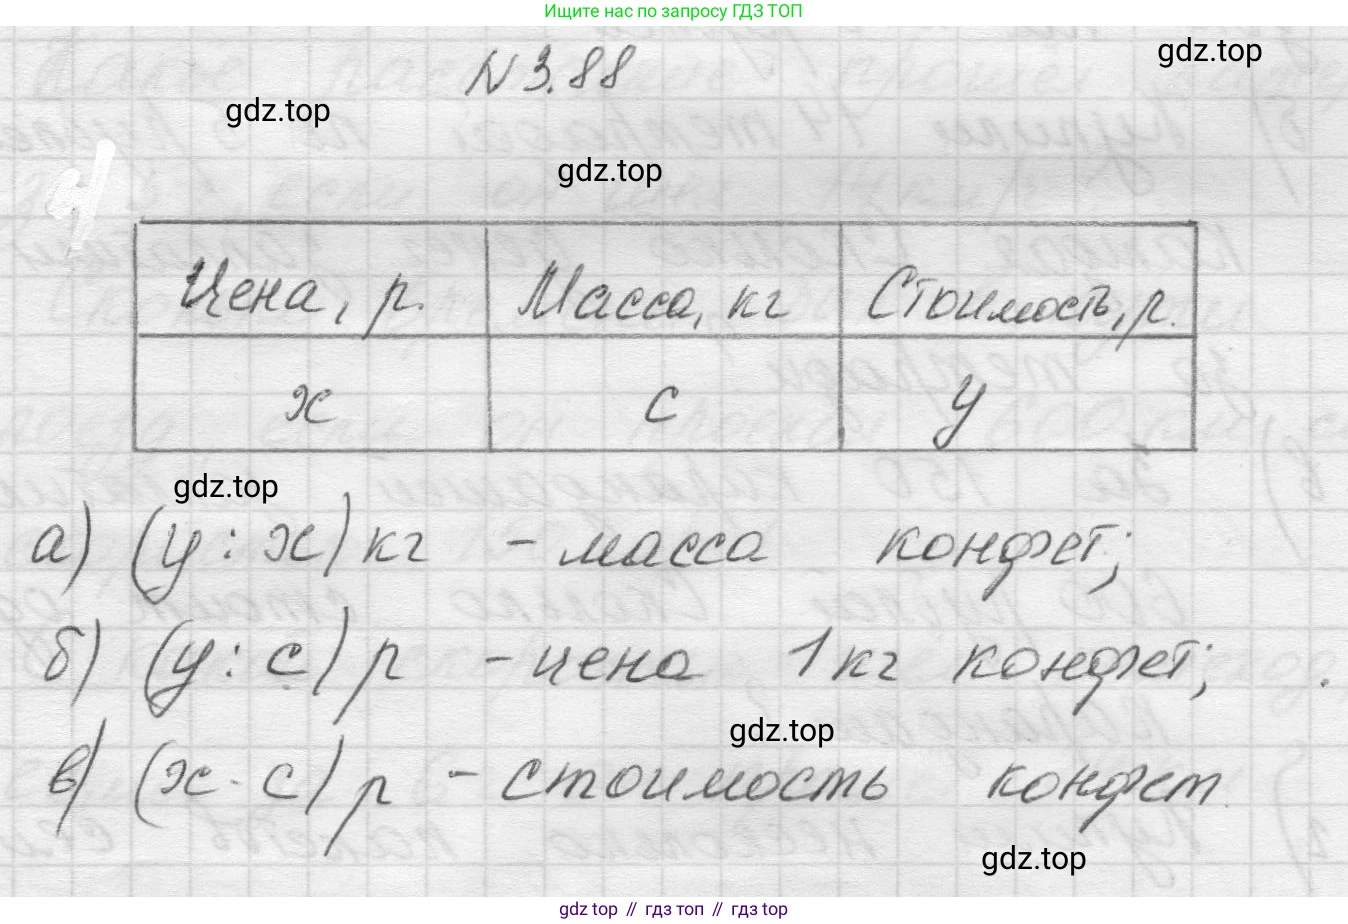 Ищите нас по запросу ГДЗ ТОП
N 3.88
gdz.top
gdz.top
gdz.top
Цена, р. Масса, кг Стоимость, р.
x c y
gdz.top
а) (y : x) кг - масса конфет;
б) (y : c) р - цена 1 кг конфет;
gdz.top
в) (x · c) р - стоимость конфет
gdz.top
gdz top // гдз топ // гдз top